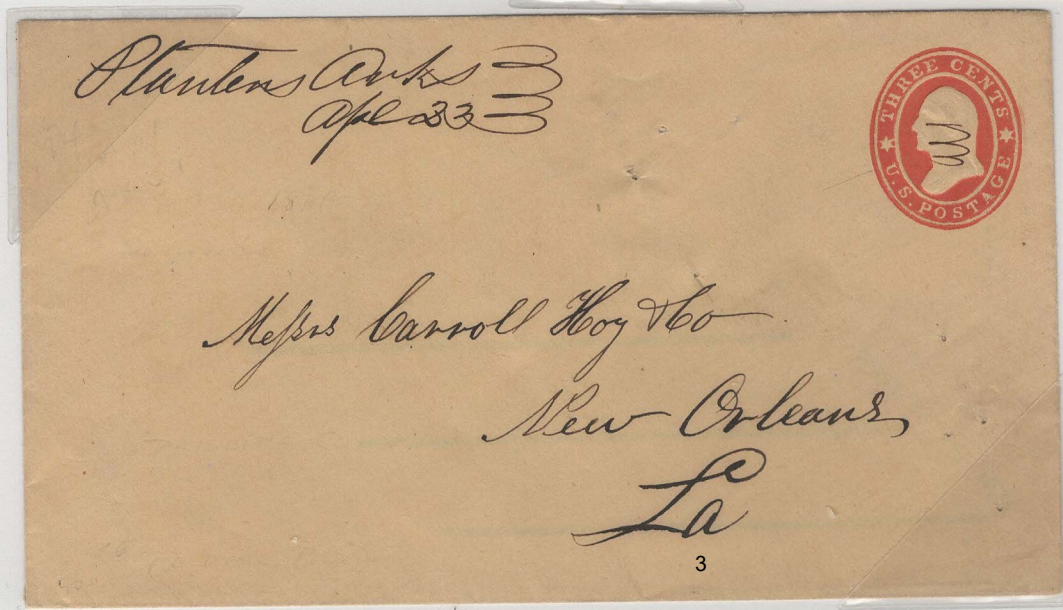 Planters Arks
Apl 23
THREE CENTS
U.S. POSTAGE
Messrs Carroll Hoy & Co
New Orleans
La
3